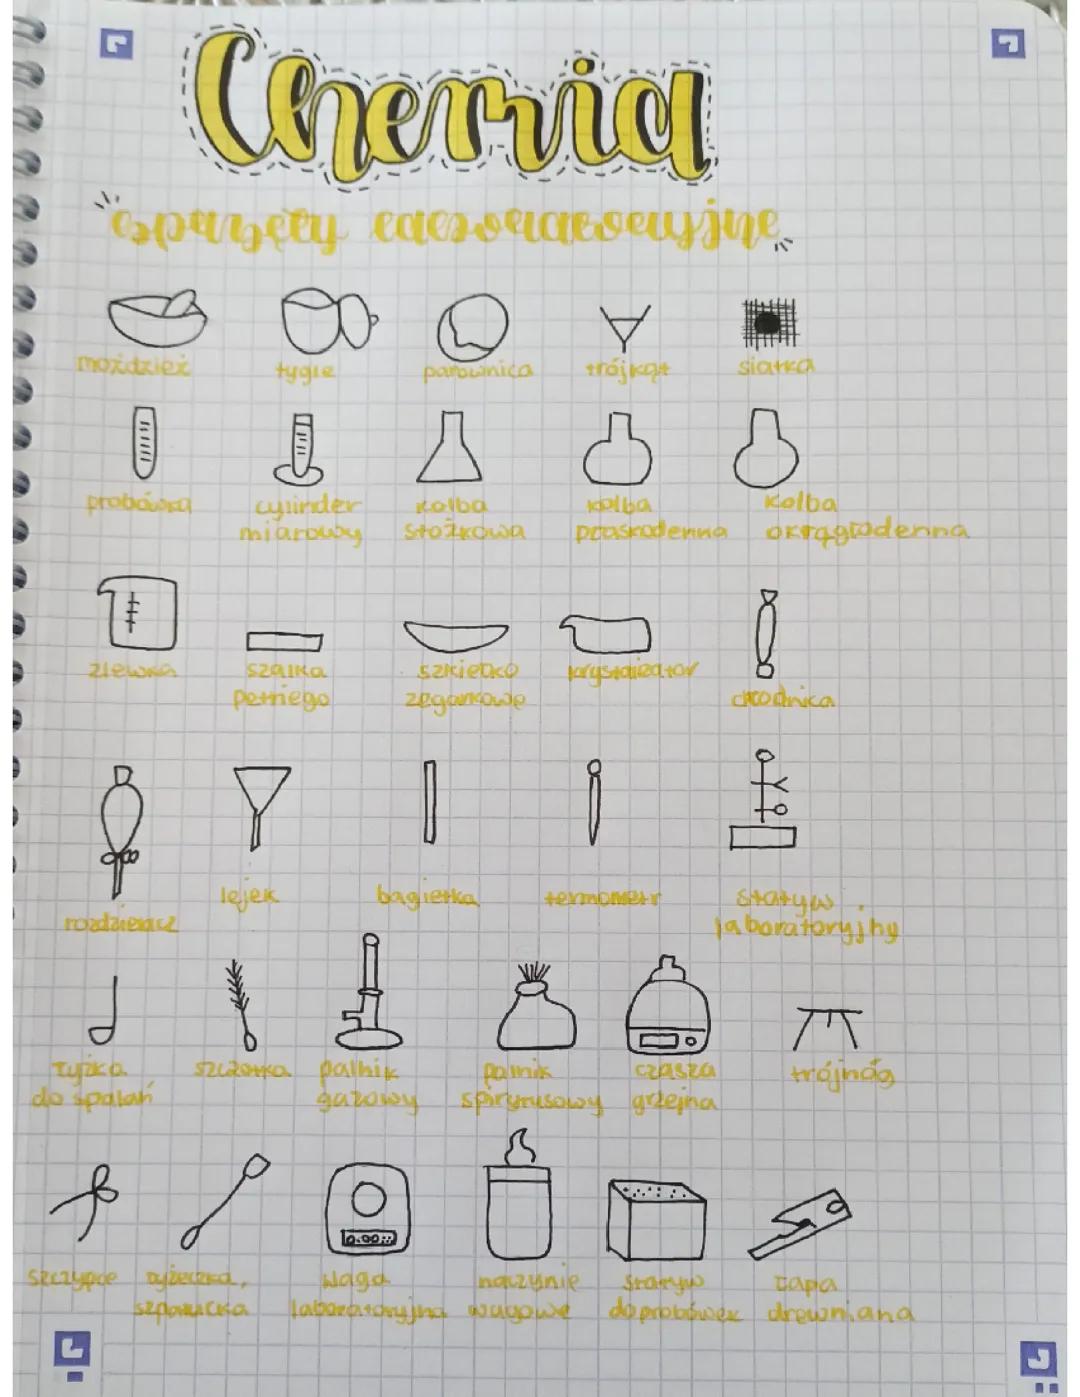 Chemia
sprzęty laboratoryjne
moździeż tygle parownica trójkąt siatka
probówka cylinder kolba kolba kolba
miarowy stożkowa płaskodenna okrągłodenna
zlewka szalka szkiełko krystalizator
petriego zegarkowe chłodnica
lejek bagietka termometr statyw
rozdzielacz laboratoryjny
łyżka szczotka palnik palnik czasza trójnóg
do spalań gazowy spirytusowy grzejna
szczypce łyżeczka, waga naczynie statyw łapa
szpatułka laboratoryjna wagowe do probówek drewniana
0.00